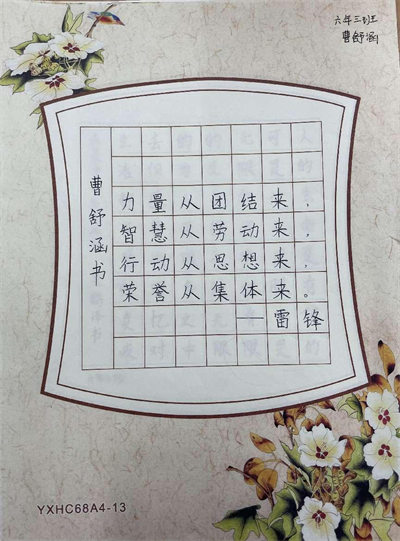 六年三班
曹舒涵
力量从团结来，
智慧从劳动来，
行动从思想来，
荣誉从集体来。
——雷锋
曹舒涵书
YXHC68A4-13